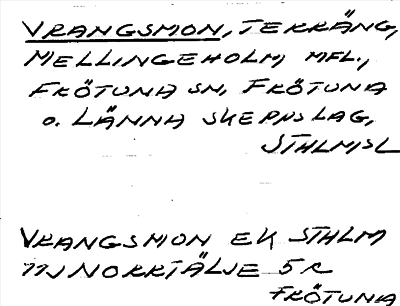 VRANGSMON, TERRÄNG,
MELLINGEHOLM MFL.,
FRÖTUNA SN, FRÖTUNA
O. LÄNNA SKEPPSLAG,
STHLMSL
VRANGSMON EK STHLM
11J NORRTÄLJE 5 R
FRÖTUNA